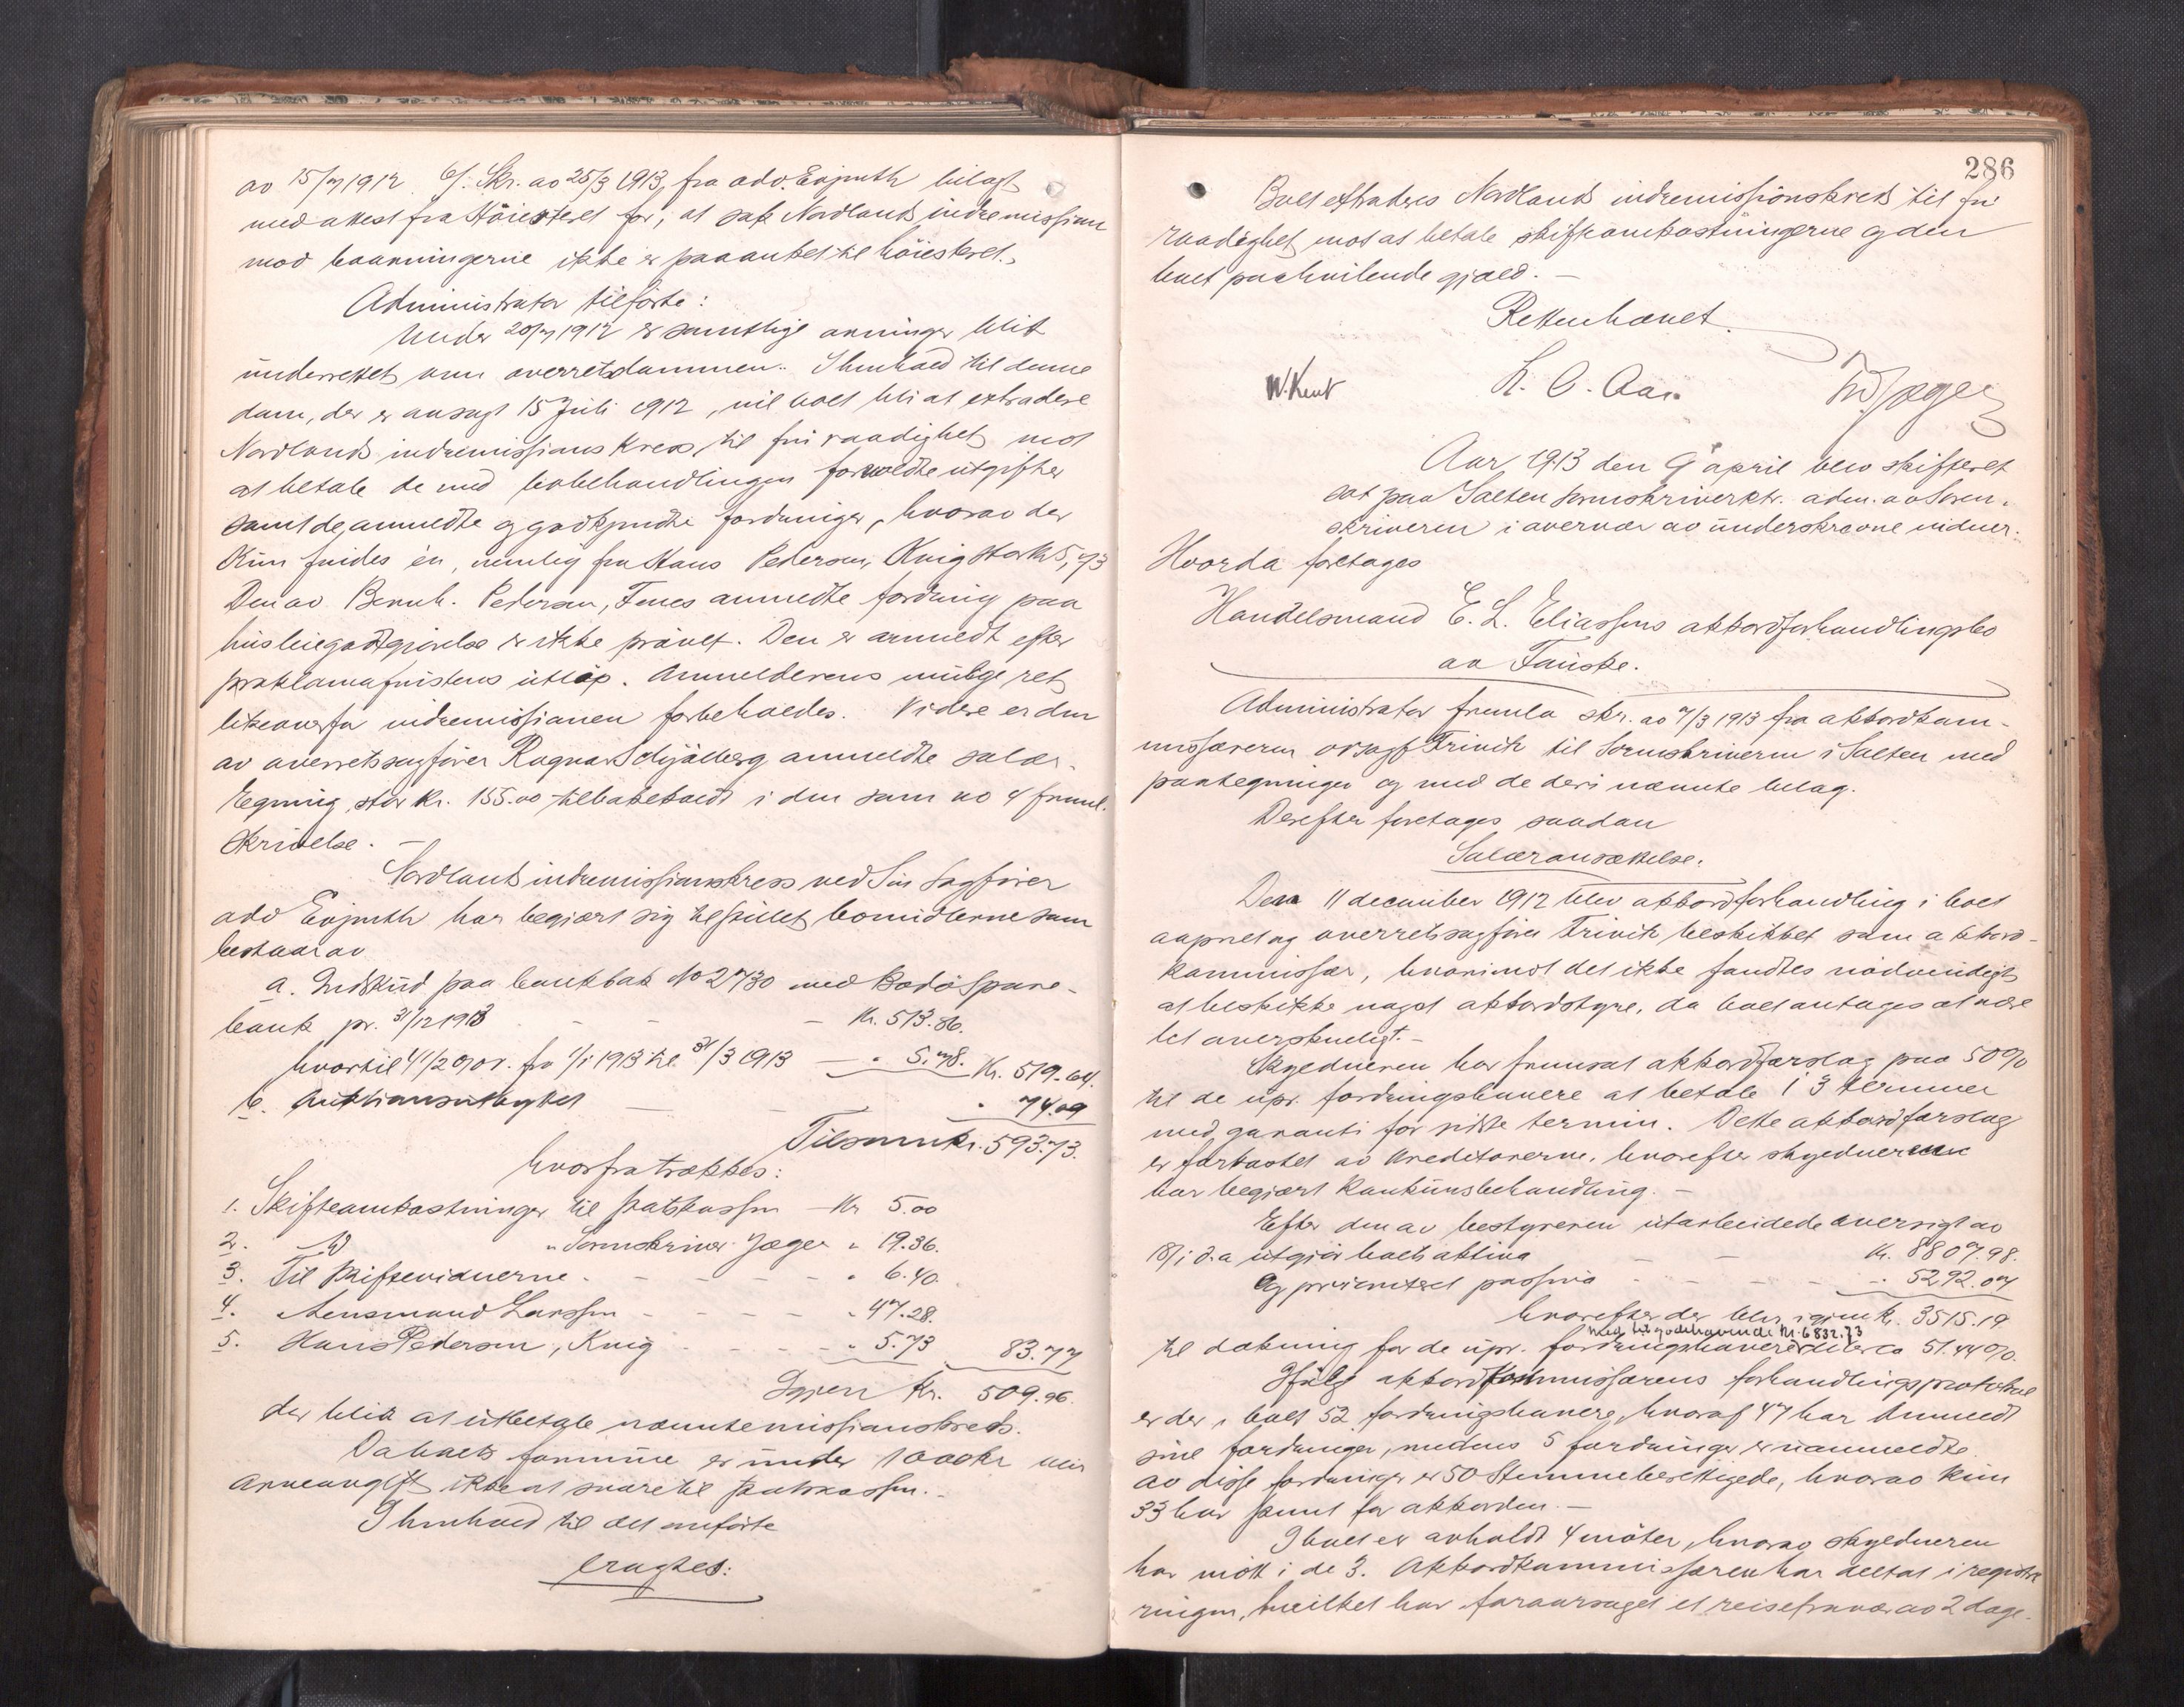 av 15/7 1912. 6/. Skr. av 25/3 1913, fra adv. Evjenth bilagt
med attest fra Höiesteret for, at sak Nordlands indremission
mod baarningerne ikke er paaanket til höiesteret.
Administrator tilförte:
Under 20/7 1912 er samtlige arvinger blit
underrettet om overretsdommen. I henhold til denne
dom, der er avsagt 15 Juli 1912, vil boet bli at extradere
Nordlands indremissions kreds, til fri raadighet mot
at betale de med bobehandlingen forvoldte utgifter
samt de anmeldte og godkjendte fordringer, hvorav der
kun findes én, nemlig fra Hans Pedersen, Knig stor kr 5,73
Den av Bernh. Pedersen, Fenes anmeldte fordring paa
husleiegodtgjörelse er ikke prövet. Den er anmeldt efter
proklamafristens utlöp. Anmelderens mulige ret
likeoverfor indremissionen forbeholdes. Videre er den
av overretssagförer Ragnar Schjölberg anmeldte salær-
regning stor kr. 155.00 tilbakekaldt i den som no 4 freml.
skrivelse. –
Nordlands indremissionskreds ved sin sagförer
adv Evjenth har begjært sig tilstillet bomidlerne som
bestaar av
a. Indskud paa bankbok No 2730 med Bodö Spare-
bank pr. 31/12 1913 - - - Kr. 513.86.
hvortil 4 1/2 % r. fra 1/1 1913 til 31/3 1913 - " 5.78. Kr. 519.64.
b. Auktionsutbyttet - - " 74.09
Tilsammen kr. 593.73.
hvorfra trækkes:
1. Skifteomkostninger til statskassen - Kr 5.00
2. do " Sorenskriver Jæger " 19.36.
3. Til skiftevidnerne. - - - - " 6.40.
4. Lensmand Larssen - - - - " 47.28.
5. Hans Pedersen, Knig - - - " 5.73 83.77
Igjen Kr. 509.96.
der blir at utbetale nævnte missionskreds.
Da boets formue er under 1000 kr blir
Arveavgift ikke at svare til statskassen. –
I henhold til det anförte
eragtes:
286
Boet extraderes Nordlands indremissionskreds til fri
raadighet mot at betale skifteomkostningerne og den
boet paahvilende gjæld. –
Retten hævet.
W. Kent K. O. Aas. Fr. Jæger
Aar 1913 den 9 april blev skifteret
sat paa Salten sorenskriverktr. adm. av Soren-
skriveren i overvær av underskrevne vidner:
Hvorda foretages
Handelsmand E. L. Eliassens akkordforhandlingsbo
av Fauske.
Administrator fremla skr. av 7/3 1913 fra akkordkom-
missæren orsagf Trivik til Sorenskriveren i Salten med
paategninger og med de deri nævnte bilag.
Derefter foretages saadan
Salæransættelse.
Den 11 december 1912 blev akkordforhandling i boet
aapnet og overretssagförer Trivik beskikket som akkord-
kommissær, hvorimot det ikke fandtes nödvendigt
at beskikke noget akkordstyre, da boet antages at være
let overskueligt. –
Skyldneren har fremsat akkordforslag paa 50 %
til de upr. fordringshavere at betale i 3 terminer
med garanti for sidste termin. Dette akkordforslag
er forkastet av kreditorerne, hvorefter skyldneren
har begjært konkursbehandling. –
Efter den av bestyreren utarbeidede oversigt av
18/1 d.a utgjör boets aktiva - - Kr. 8807.98.
og prioritert passiva - - - - " 5292.07
hvorefter der blir igjen kr. 3515.19
med tilgodehavende Kr. 6832.73
til dækning for de upr. fordringshavere eller ca 51.44 %.
Ifölge akkordkommissærens forhandlingsprotokol
er der i boet 52 fordringshavere, hvoraf 47 har anmeldt
sine fordringer, medens 5 fordringer er uanmeldte
av disse fordringer er 50 stemmeberettigede, hvorav kun
33 har stemt for akkorden. –
I boet er avholdt 4 möter, hvorav skyldneren
har mött i de 3. Akkordkommissæren har deltat i registre-
ringen, hvilket har foraarsaget et reisefravær av 2 dage.